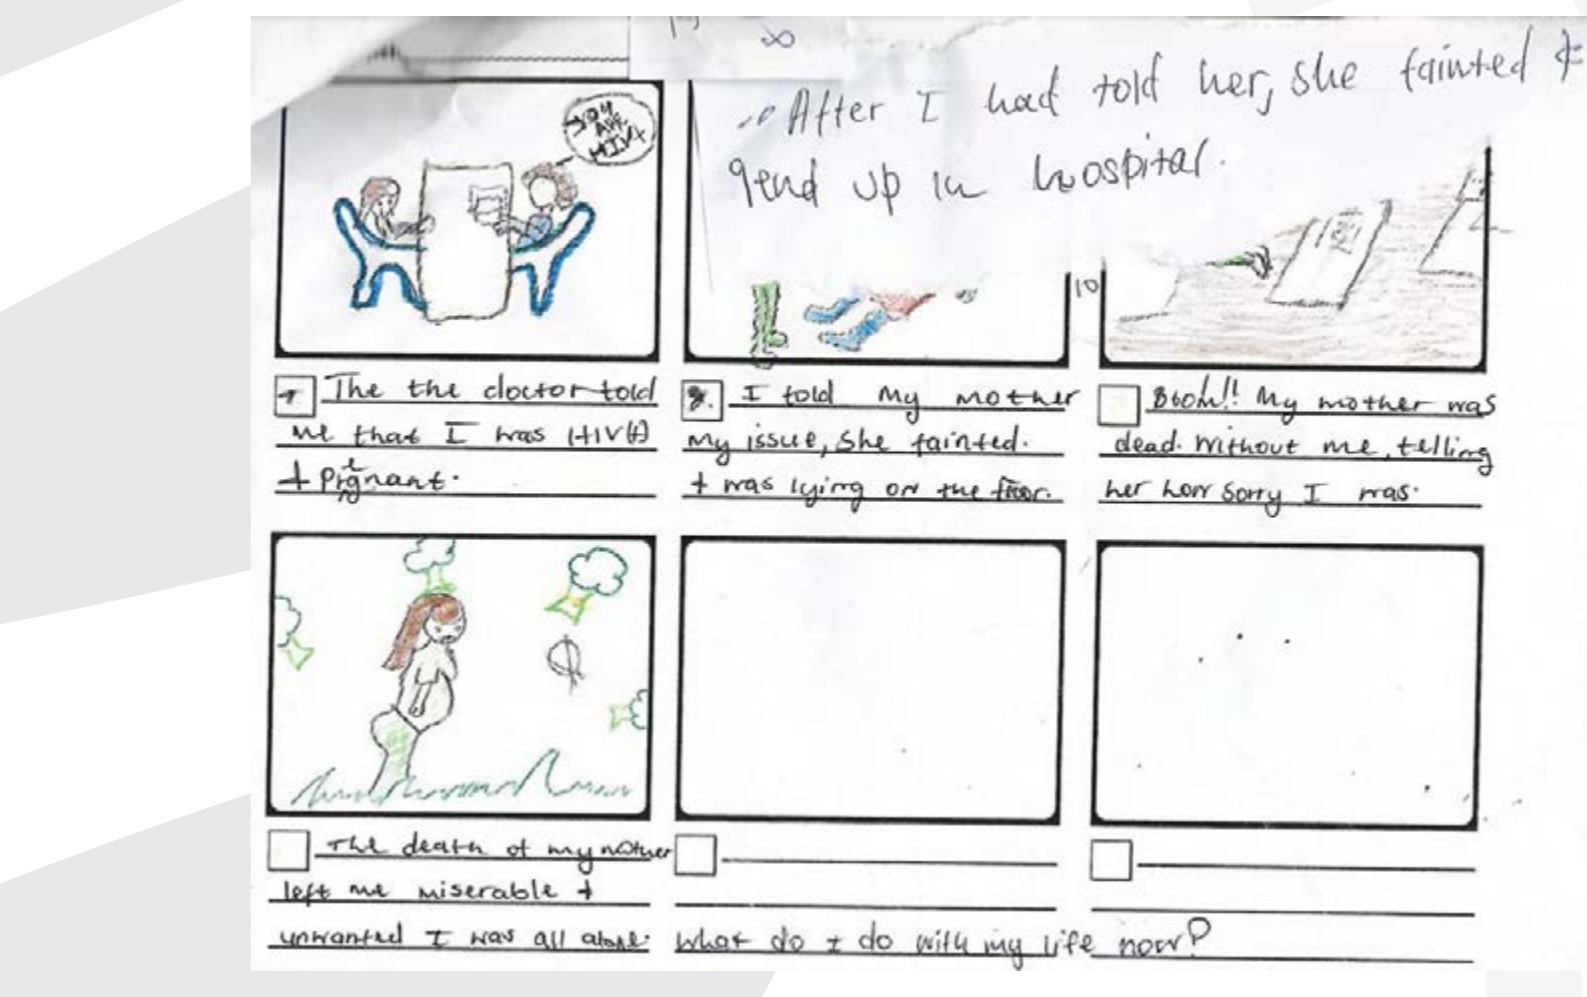 8
After I had told her, she fainted &
end up in hospital.
YOU
ARE
HIV+
10
The the doctor told
me that I was HIV(+)
+ Pregnant.
8. I told my mother
my issue, she fainted.
+ was lying on the floor.
Boom!! My mother was
dead. without me, telling
her how sorry I was.
The death of my mother
left me miserable +
unwanted I was all alone.
What do I do with my life now?